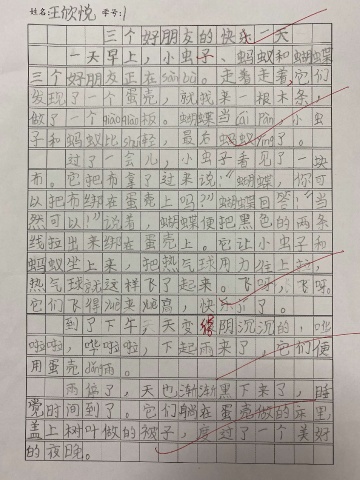 姓名:王欣悦 学号:1
三个好朋友的快乐一天
一天早上,小虫子、蚂蚁和蝴蝶
三个好朋友正在sàn bù。走着走着,它们
发现了一个蛋壳,就找来一根木条,
做了一个qiāoqiāo板。蝴蝶当cái pàn,小虫
子和蚂蚁比shū轻,最后蚂蚁yíng了。
过了一会儿,小虫子看见了一块
布。它把布拿了过来说:“蝴蝶,你可
以把布绑在蛋壳上吗?”蝴蝶回答:“当
然可以!”说着,蝴蝶便把黑色的两条
线拉出来绑在蛋壳上。它让小虫子和
蚂蚁坐上来,把热气球用力往上拉,
热气球就这样飞了起来。飞呀,飞呀,
它们飞得yuè来yuè高,快乐小了。
到了下午,天变得阴沉沉的,
啦啦,哗啦啦,下起雨来了,它们便
用蛋壳
雨停了,天也渐渐黑下来了,睡
觉时间到了。它们躺在蛋壳做的床里
盖上树叶做的被子,度过了一个美好
的夜晚。